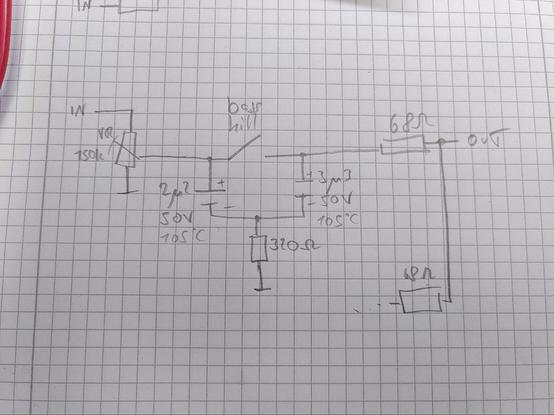 IN
IN
VR
150k
bass
kill
68Ω
OUT
2µ2
50V
105°C
3µ3
50V
105°C
320Ω
68Ω